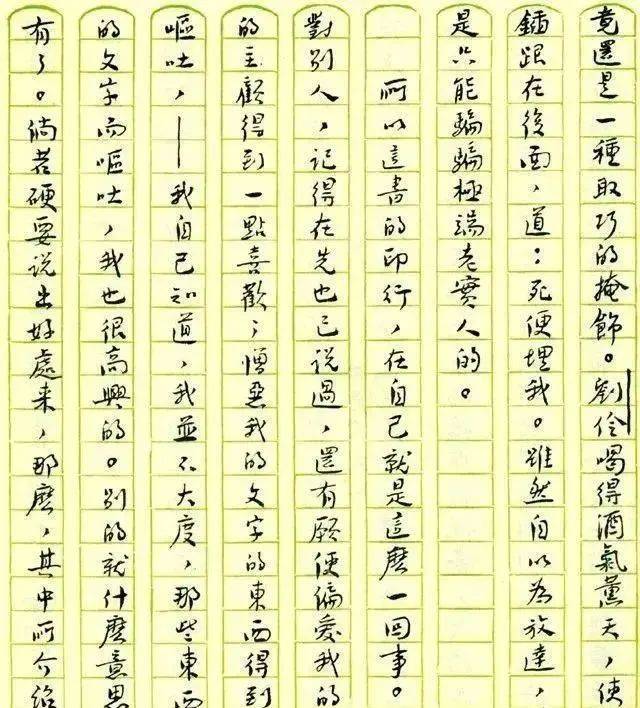 竟還是一種取巧的掩飾。劉伶喝得酒氣薰天，使
鍤跟在後面，道：死便埋我。雖然自以為放達，
是只能騙騙極端老實人的。
所以這書的印行，在自己就是這麼一回事。
對別人，記得在先也已說過，還有願使偏愛我的
的主顧得到一點喜歡；憎惡我的文字的東西得到
嘔吐，——我自己知道，我並不大度，那些東西
的文字而嘔吐，我也很高興的。別的就什麼意思
有了。倘若硬要說出好處來，那麼，其中所介紹